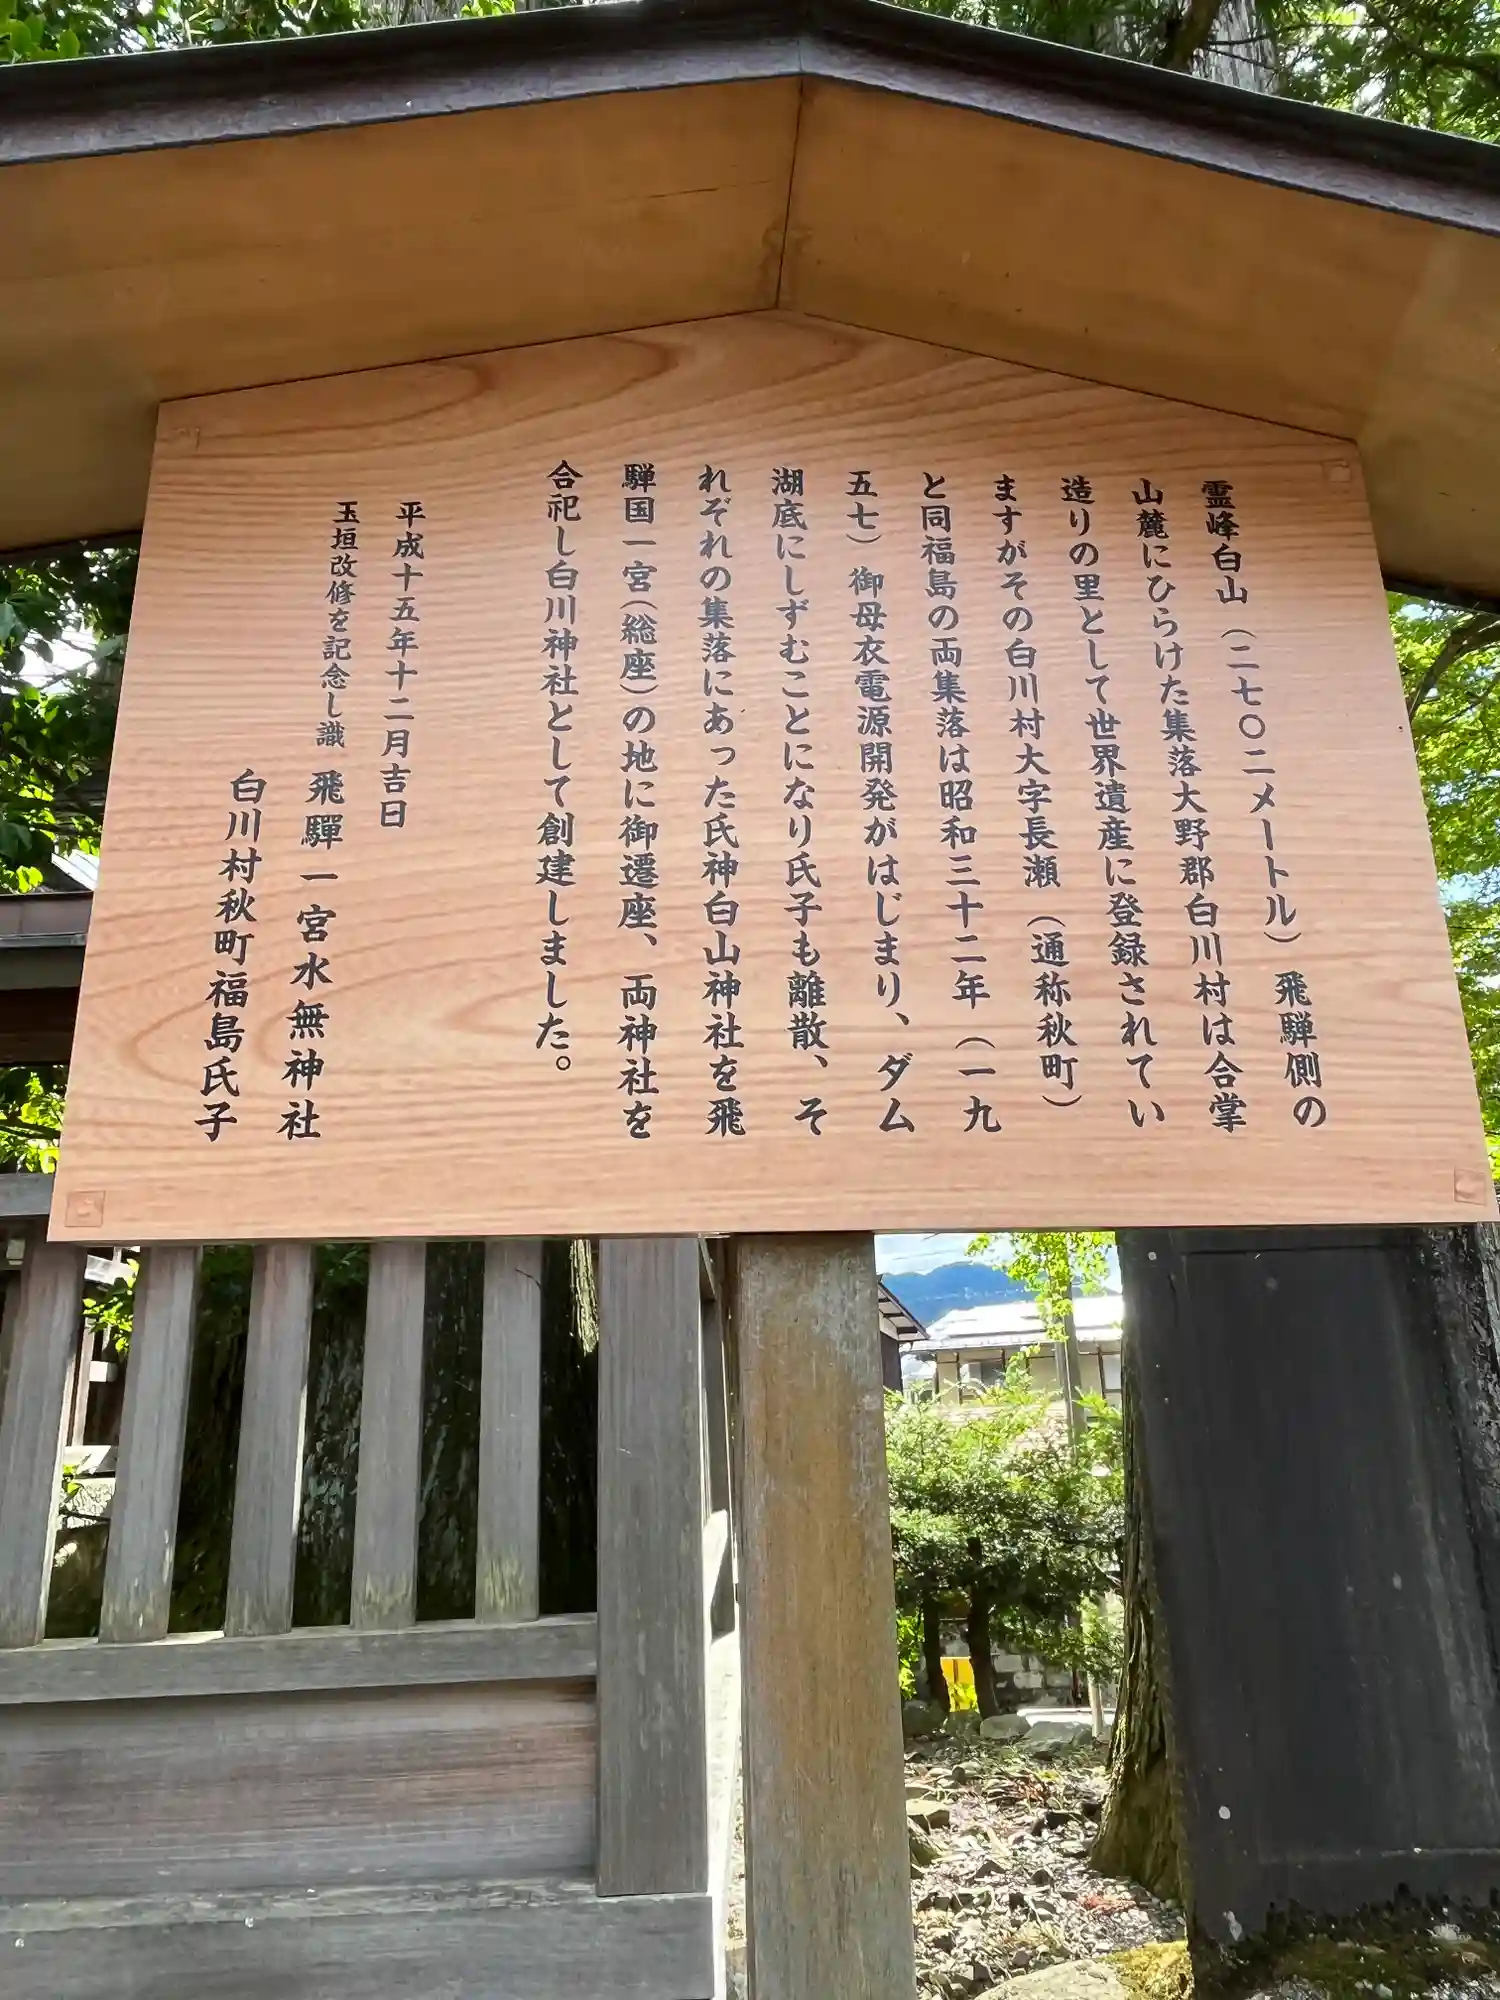 霊峰白山（二七〇二メートル）飛騨側の
山麓にひらけた集落大野郡白川村は合掌
造りの里として世界遺産に登録されてい
ますがその白川村大字長瀬（通称秋町）
と同福島の両集落は昭和三十二年（一九
五七）御母衣電源開発がはじまり、ダム
湖底にしずむことになり氏子も離散、そ
れぞれの集落にあった氏神白山神社を飛
騨国一宮（総座）の地に御遷座、両神社を
合祀し白川神社として創建しました。
平成十五年十二月吉日
玉垣改修を記念し識 飛驒一宮水無神社
白川村秋町福島氏子